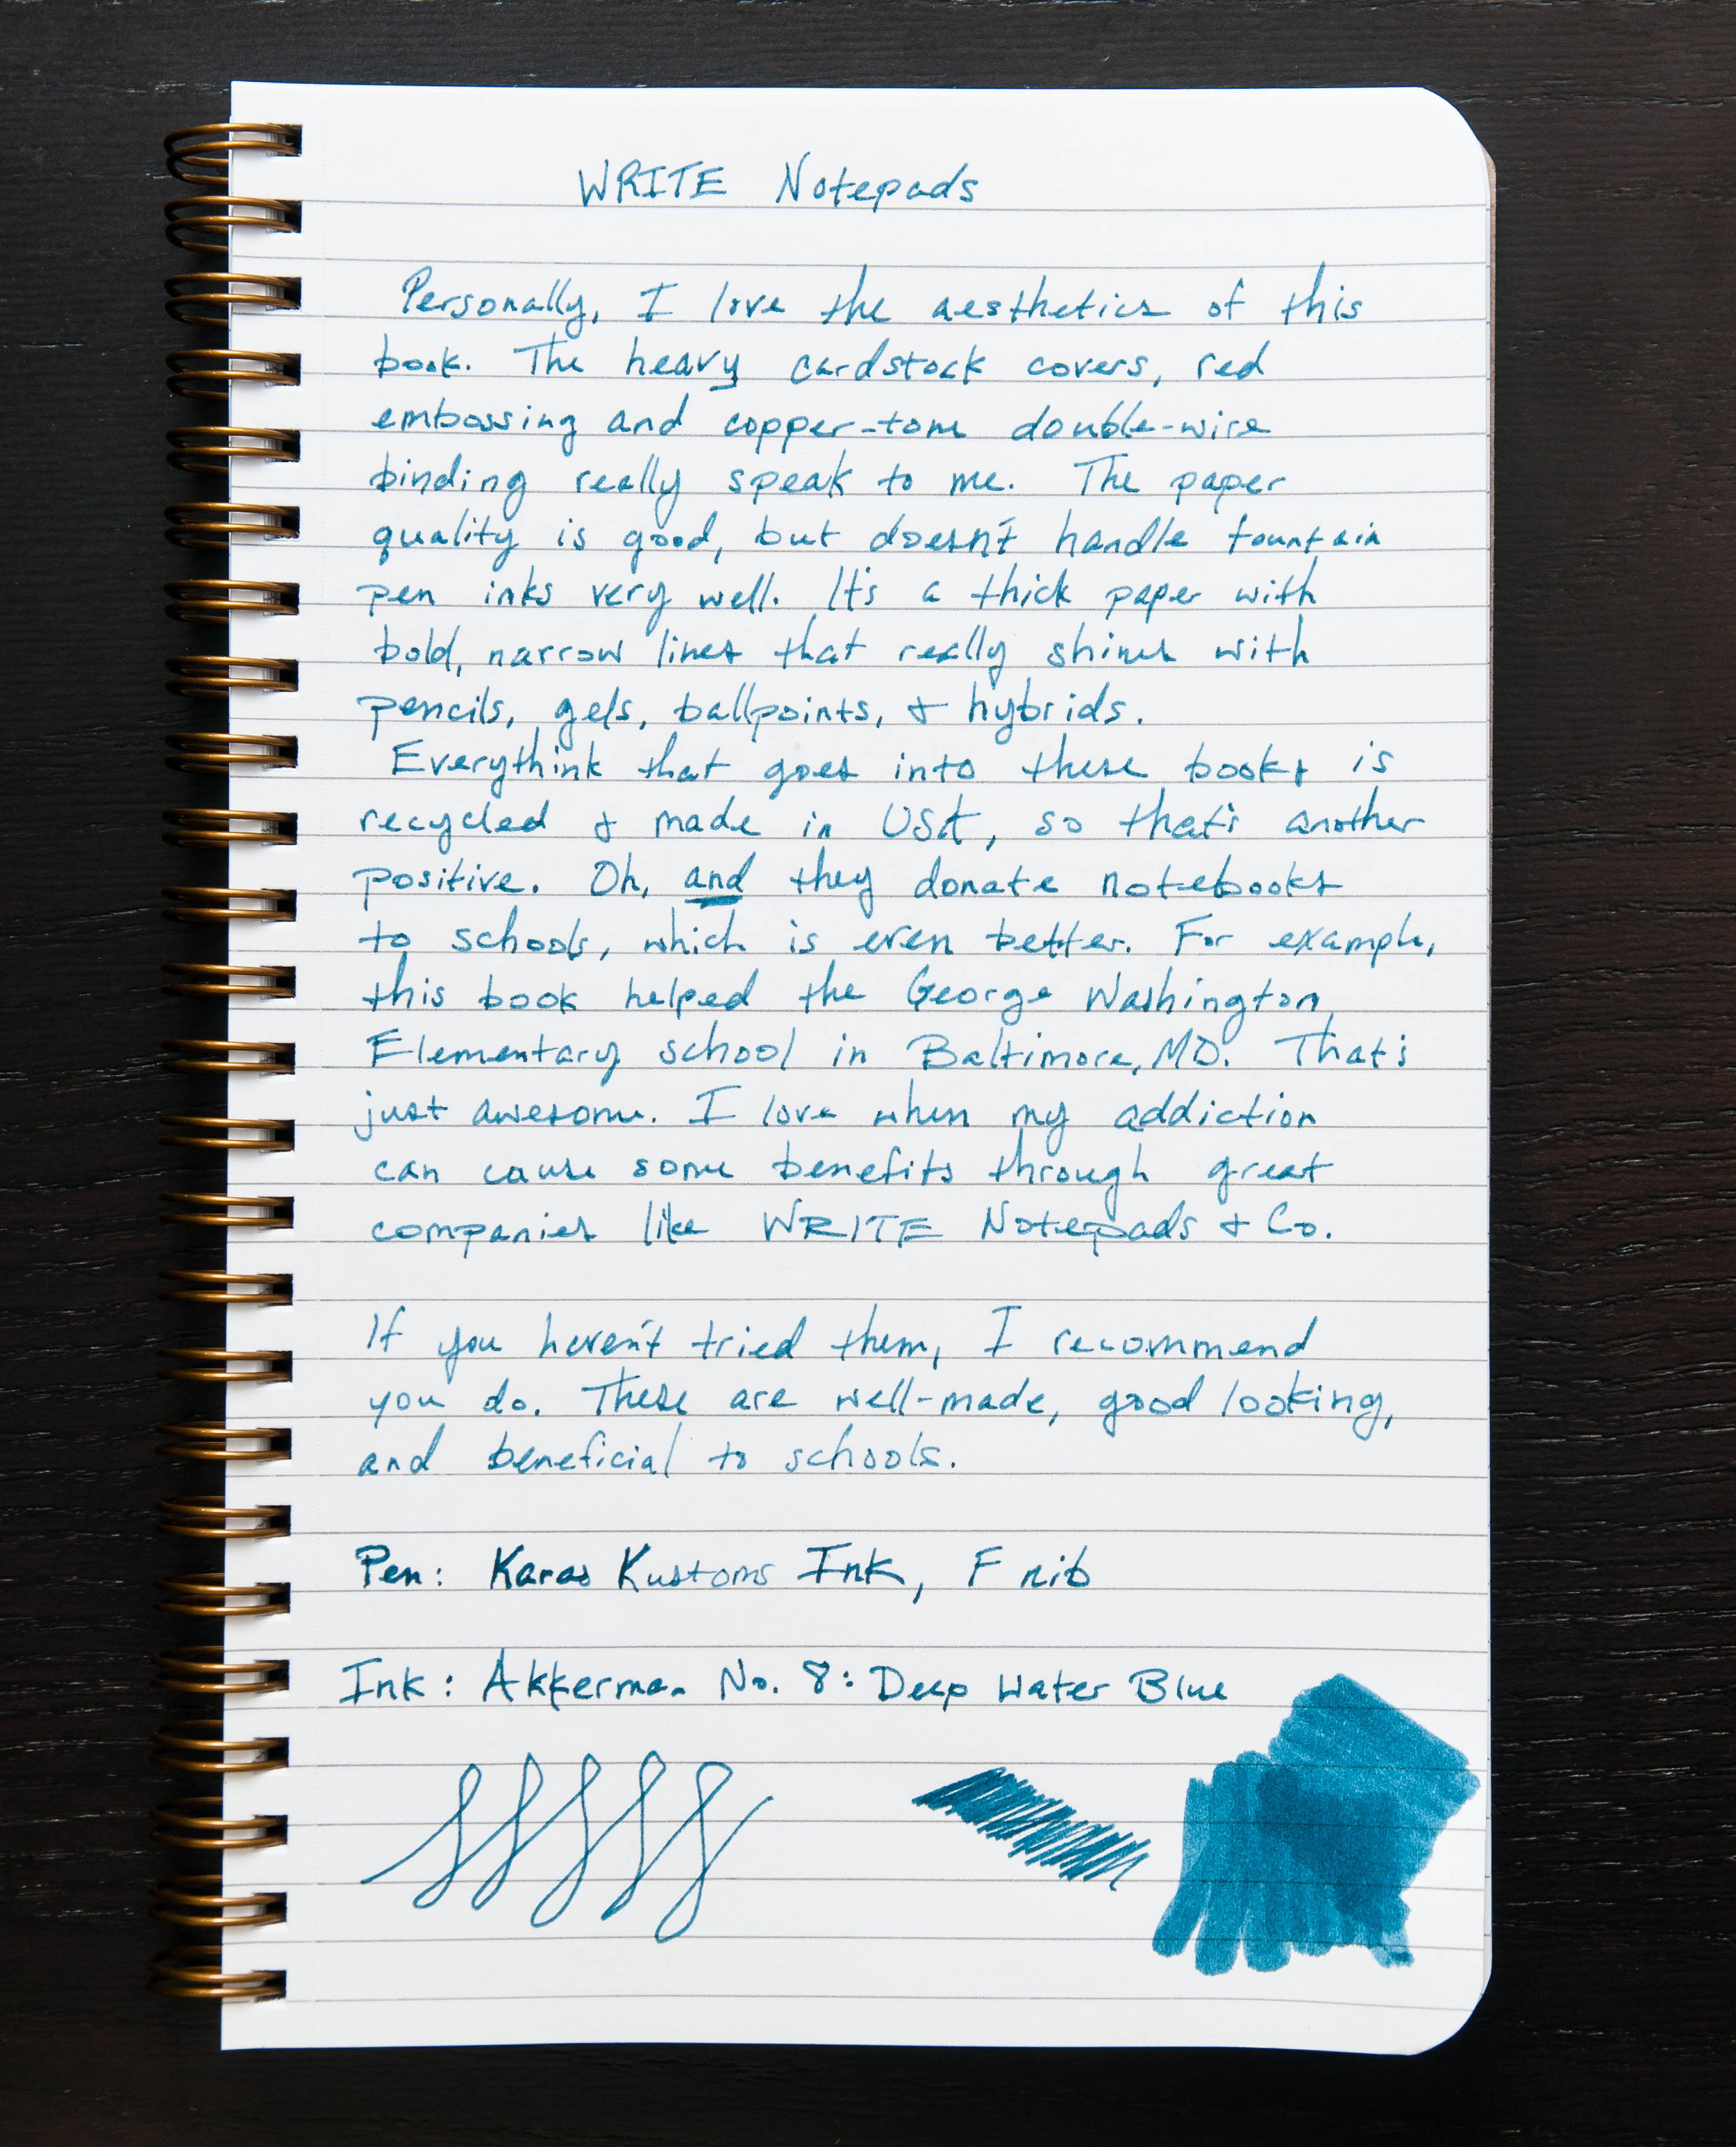 WRITE Notepads
Personally, I love the aesthetics of this
book. The heavy cardstock covers, red
embossing and copper-tone double-wire
binding really speak to me. The paper
quality is good, but doesn't handle fountain
pen inks very well. It's a thick paper with
bold, narrow lines that really shines with
pencils, gels, ballpoints, & hybrids.
Everythink that goes into these books is
recycled & made in USA, so that's another
positive. Oh, and they donate notebooks
to schools, which is even better. For example,
this book helped the George Washington
Elementary school in Baltimore, MD. That's
just awesome. I love when my addiction
can cause some benefits through great
companies like WRITE Notepads & Co.
If you haven't tried them, I recommend
you do. These are well-made, good looking,
and beneficial to schools.
Pen: Karas Kustoms Ink, F nib
Ink: Akkerman No. 8: Deep Water Blue